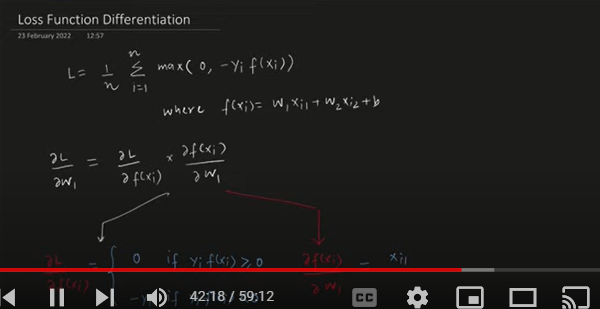 Loss Function Differentiation
23 February 2022 12:57
L = 1/n Σ i=1 n max(0, -yi f(xi))
where f(xi) = w1xi1 + w2xi2 + b
∂L/∂w1 = ∂L/∂f(xi) × ∂f(xi)/∂w1
∂L/∂f(xi) = { 0 if yi f(xi) ≥ 0 ∂f(xi)/∂w1 = xi1
-yi if
42:18 / 59:12 CC